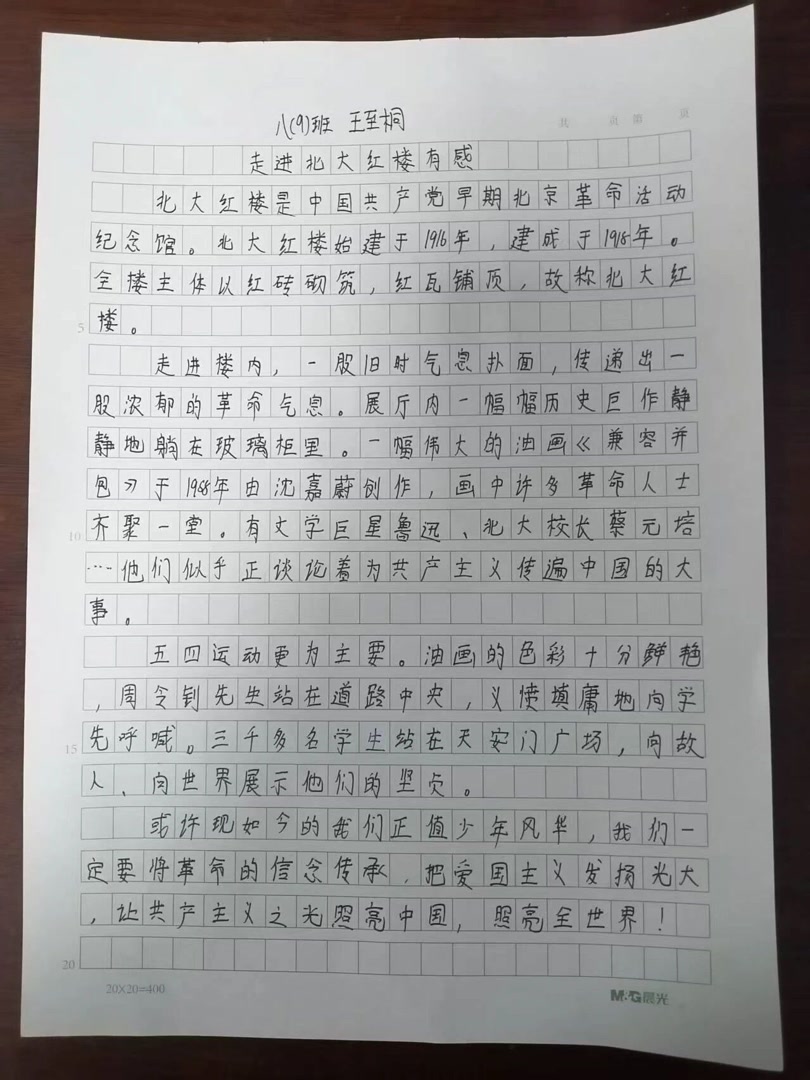 共 页 第 页
八(9)班 王至桐
走进北大红楼有感
北大红楼是中国共产党早期北京革命活动
纪念馆。北大红楼始建于1916年，建成于1918年。
全楼主体以红砖砌筑，红瓦铺顶，故称北大红
5 楼。
走进楼内，一股旧时气息扑面，传递出一
股浓郁的革命气息。展厅内一幅幅历史巨作静
静地躺在玻璃柜里。一幅伟大的油画《兼容并
包》于1988年由沈嘉蔚创作，画中许多革命人士
10 齐聚一堂。有文学巨星鲁迅、北大校长蔡元培
…他们似乎正谈论着为共产主义传遍中国的大
事。
五四运动更为主要。油画的色彩十分鲜艳
，周令钊先生站在道路中央，义愤填庸地向学
15 先呼喊。三千多名学生站在天安门广场，向故
人、向世界展示他们的坚贞。
或许现如今的我们正值少年风华，我们一
定要将革命的信念传承，把爱国主义发扬光大
，让共产主义之光照亮中国，照亮全世界！
20
20×20=400 M&G晨光